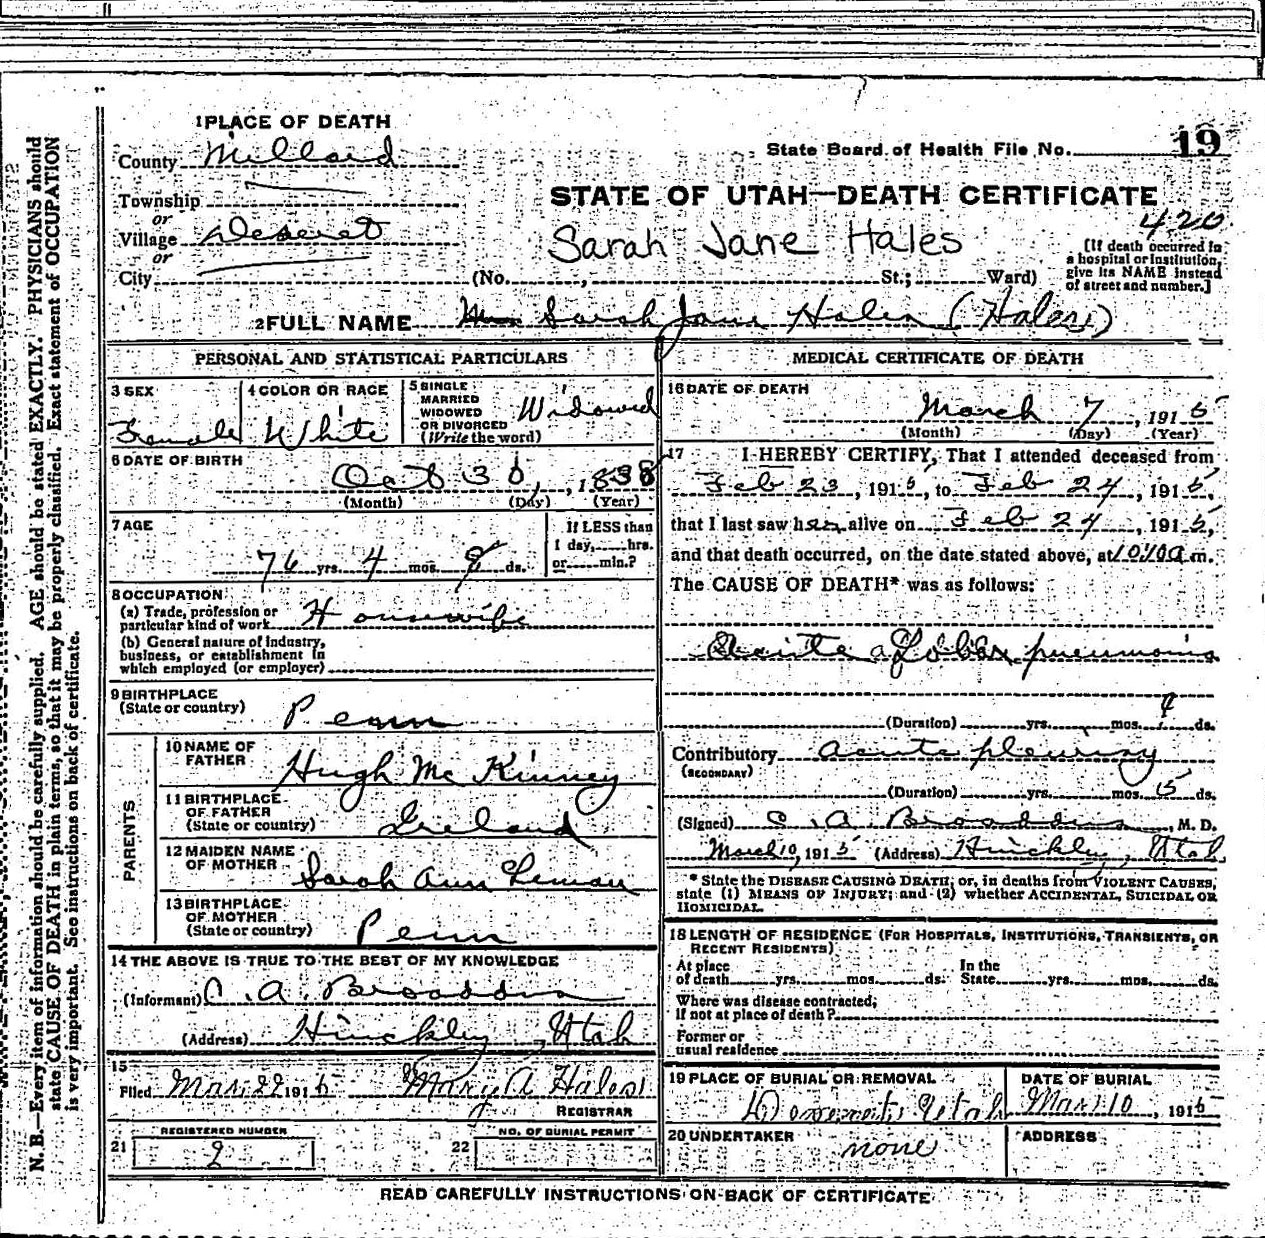 1 PLACE OF DEATH
County Millard
State Board of Health File No. 19
Township
or
Village Deseret
or
City
STATE OF UTAH—DEATH CERTIFICATE
420
Sarah Jane Hales
(No. , St.; Ward)
[If death occurred in
a hospital or institution,
give its NAME instead
of street and number.]
2 FULL NAME Mrs Sarah Jane Hales (Hales)
PERSONAL AND STATISTICAL PARTICULARS
3 SEX
Female
4 COLOR OR RACE
White
5 SINGLE
MARRIED
WIDOWED
OR DIVORCED
(Write the word)
Widowed
6 DATE OF BIRTH
Oct 30, , 1838
(Month) (Day) (Year)
7 AGE
76 yrs. 4 mos. 8 ds.
If LESS than
1 day, hrs.
or min.?
8 OCCUPATION
(a) Trade, profession or
particular kind of work Housewife
(b) General nature of industry,
business, or establishment in
which employed (or employer)
9 BIRTHPLACE
(State or country)
Penn
PARENTS
10 NAME OF
FATHER
Hugh McKinney
11 BIRTHPLACE
OF FATHER
(State or country)
Ireland
12 MAIDEN NAME
OF MOTHER
Sarah Ann Leman
13 BIRTHPLACE
OF MOTHER
(State or country)
Penn
14 THE ABOVE IS TRUE TO THE BEST OF MY KNOWLEDGE
(Informant) C. A. Broaddus
(Address) Hinckley, Utah
15
Filed Mar. 22 1915 Mary A Hales
REGISTRAR
REGISTERED NUMBER
21 2
NO. OF BURIAL PERMIT
22
MEDICAL CERTIFICATE OF DEATH
16 DATE OF DEATH
March 7 , 1915
(Month) (Day) (Year)
17 I HEREBY CERTIFY, That I attended deceased from
Feb 23, 1915, to Feb 24, 1915,
that I last saw her alive on Feb 24, 1915,
and that death occurred, on the date stated above, at 10:10 a m.
The CAUSE OF DEATH* was as follows:
Acute Lobar pneumonia
(Duration) yrs. mos. 9 ds.
Contributory acute pleurisy
(SECONDARY)
(Duration) yrs. mos. 15 ds.
(Signed) C. A. Broaddus, M. D.
March 10, 1915 (Address) Hinckley, Utah
* State the DISEASE CAUSING DEATH; or, in deaths from VIOLENT CAUSES,
state (1) MEANS OF INJURY; and (2) whether ACCIDENTAL, SUICIDAL OR
HOMICIDAL.
18 LENGTH OF RESIDENCE (FOR HOSPITALS, INSTITUTIONS, TRANSIENTS, OR
RECENT RESIDENTS)
At place
of death yrs. mos. ds.
In the
State yrs. mos. ds.
Where was disease contracted,
if not at place of death?
Former or
usual residence
19 PLACE OF BURIAL OR REMOVAL
Deseret, Utah
DATE OF BURIAL
Mar. 10, 1915
20 UNDERTAKER
none
ADDRESS
READ CAREFULLY INSTRUCTIONS ON BACK OF CERTIFICATE
N. B.—Every item of information should be carefully supplied. AGE should be stated EXACTLY. PHYSICIANS should
state CAUSE OF DEATH in plain terms, so that it may be properly classified. Exact statement of OCCUPATION
is very important. See instructions on back of certificate.